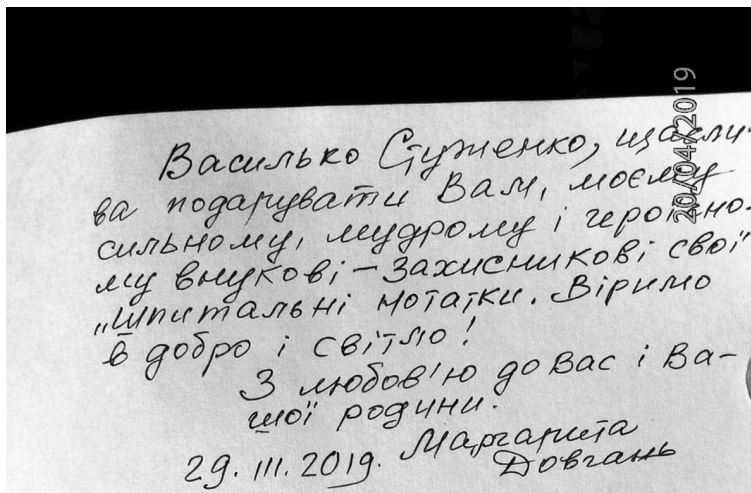 Василько Стуженко, щасли-
ва подарувати Вам, моєму
сильному, мудрому і героїчно-
му внукові – Захисникові свої
„Шпитальні нотатки. Віримо
в добро і світло!
З любов'ю до Вас і Ва-
шої родини.
29. III. 2019. Маргарита
Довгань
20/04/2019